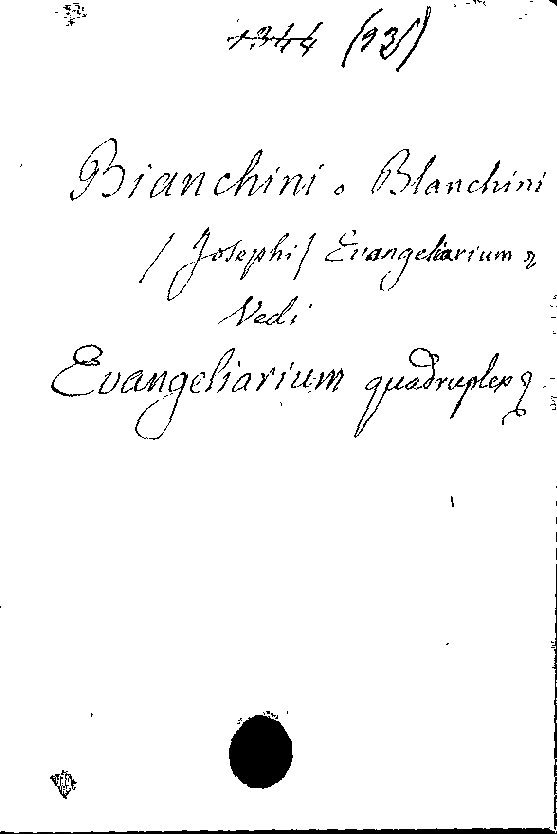 1344 (13)
Bianchini o Blanchini
/Josephi/ Evangeliarium &
Vedi
Evangeliarium quadruplex &